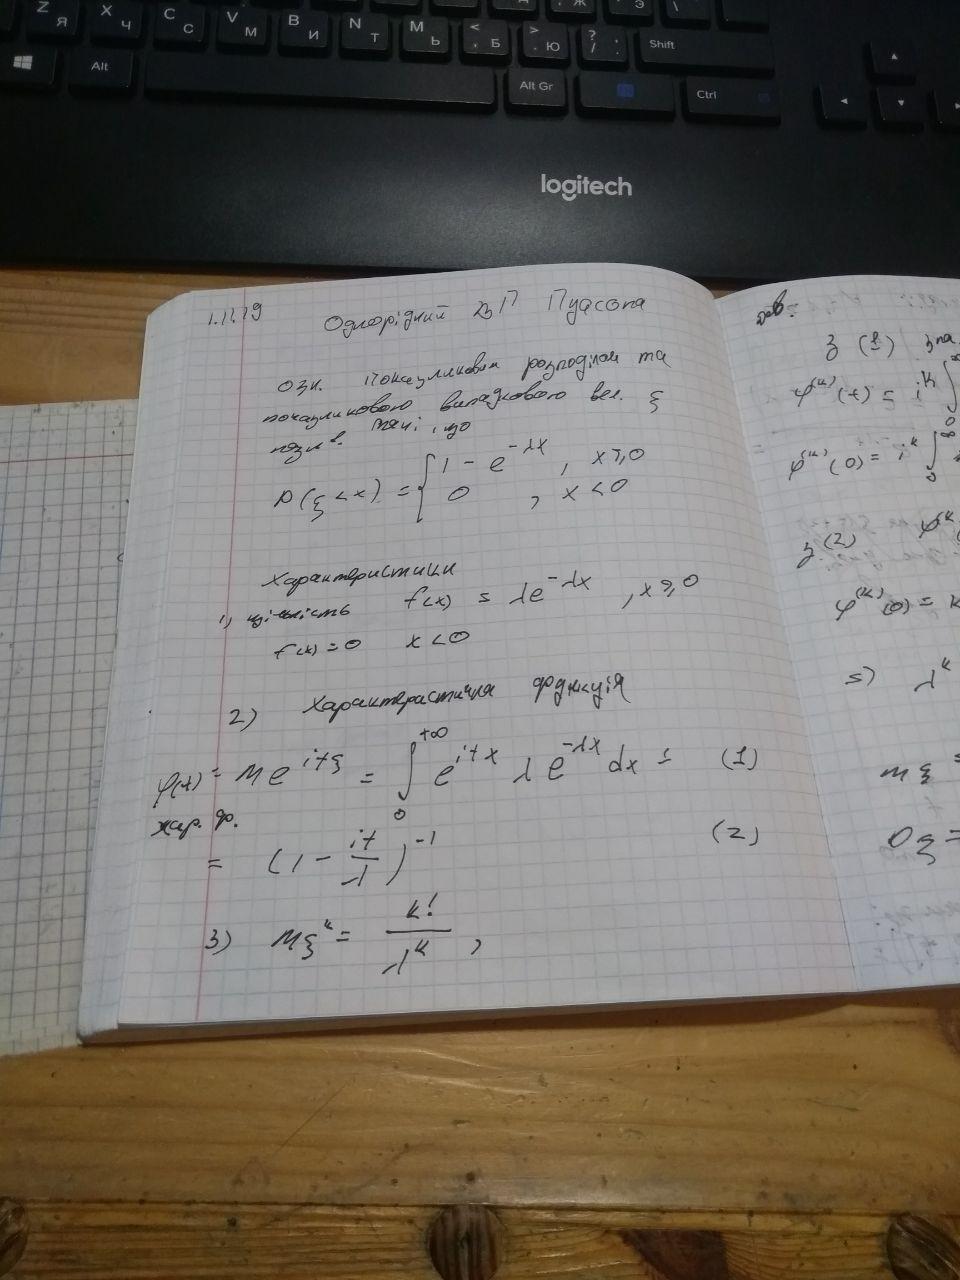 Z Я
X Ч
C С
V М
B И
N Т
M Ь
< , Б
> . Ю
? / .
Shift
Alt
Alt Gr
Ctrl
logitech
1.11.19 Однорідний ВП Пуасона
Озн. Показниковим розподілом та
показникового випадкового вел. ξ
назив. такі, що
P(ξ < x) = { 1 - e^{-λx}, x ≥ 0
0, x < 0
Характеристики
1) щільність f(x) = λe^{-λx}, x ≥ 0
f(x) = 0 x < 0
2) Характеристична функція
φ(t) = Me^{itξ} = ∫_0^{+∞} e^{itx} λ e^{-λx} dx = (1)
хар. ф.
= (1 - it/λ)^{-1} (2)
3) Mξ^k = k!/λ^k ,
дов.
З (1)
φ^{(k)}(t) = i^k ∫_0^∞
φ^{(k)}(0) = i^k ∫_0^∞
З (2) φ^{(k)}
φ^{(k)}(0) = k
5) λ^k
Mξ =
Dξ =